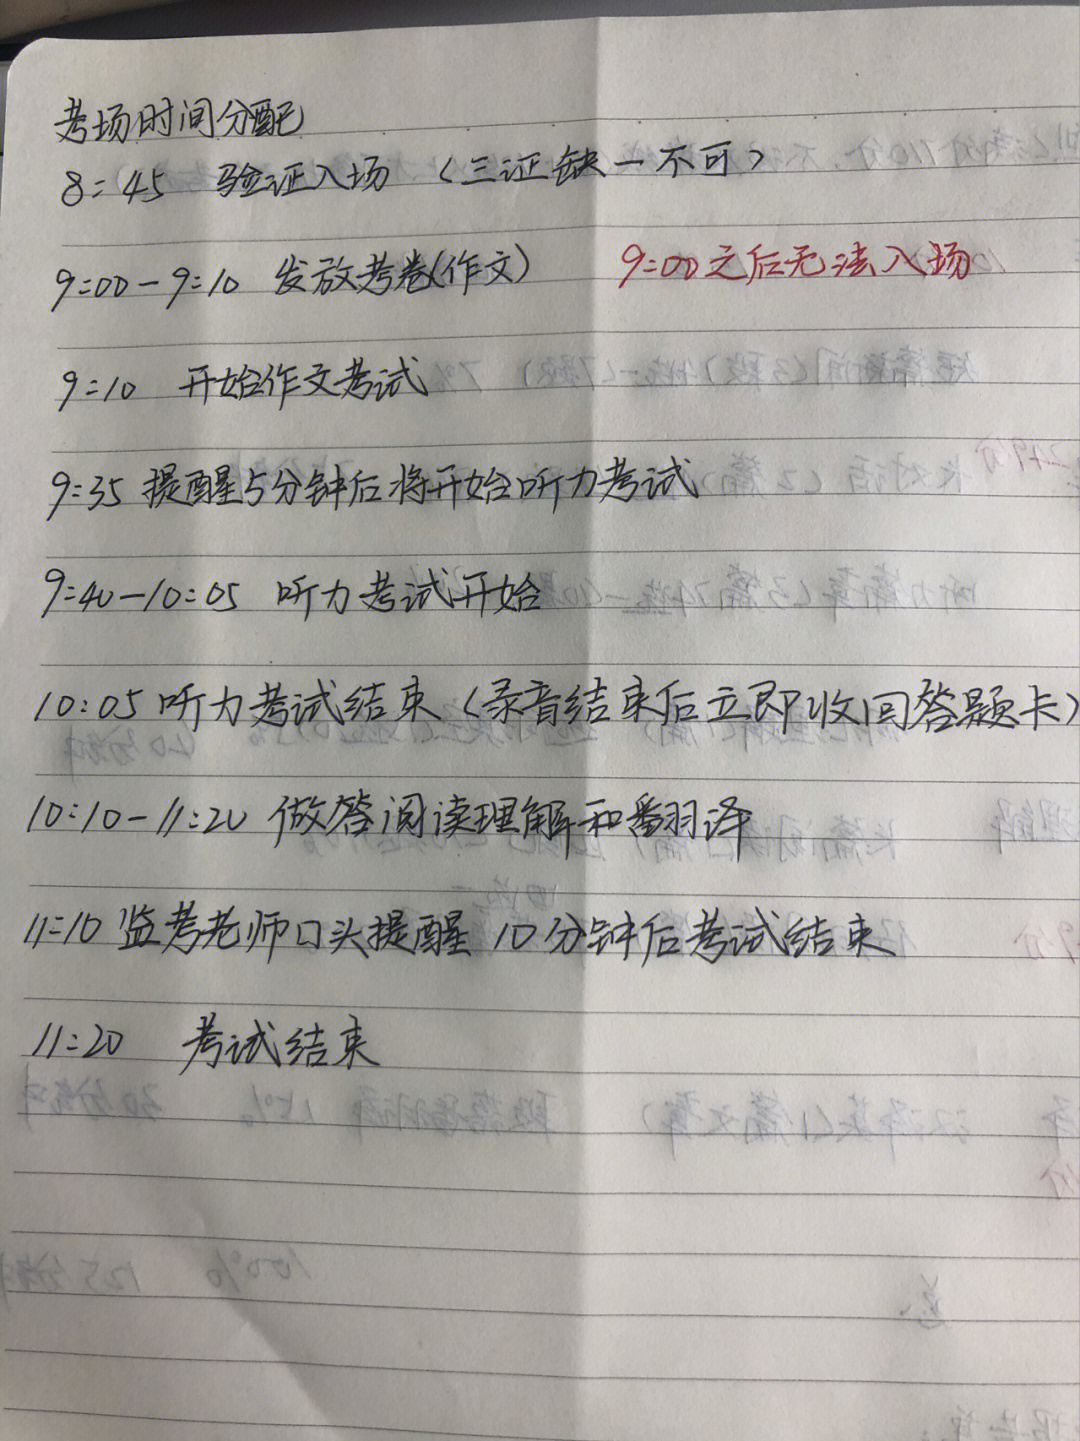 考场时间分配
8:45 验证入场 (三证缺一不可)
9:00-9:10 发放考卷(作文) 9:00之后无法入场
9:10 开始作文考试
9:35 提醒5分钟后将开始听力考试
9:40-10:05 听力考试开始
10:05 听力考试结束(录音结束后立即收回答题卡)
10:10-11:20 做答阅读理解和翻译
11:10 监考老师口头提醒 10分钟后考试结束
11:20 考试结束